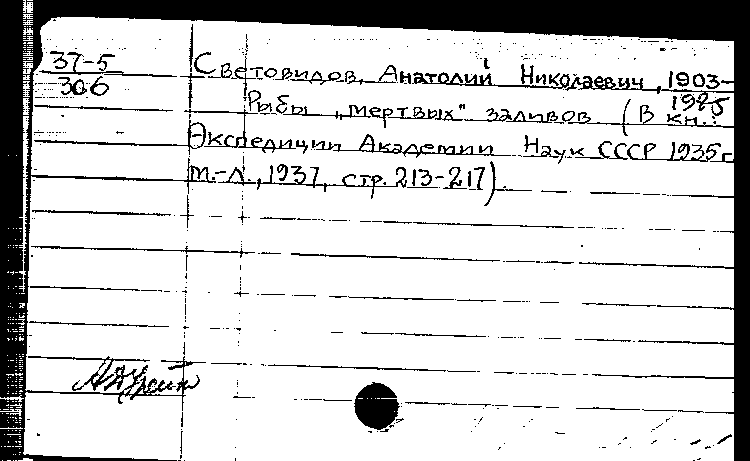 37-5
306
Световидов, Анатолий Николаевич, 1903-
1985
Рыбы „мертвых" заливов (В кн.:
Экспедиции Академии Наук СССР 1935г
М.-Л., 1937, стр. 213-217).